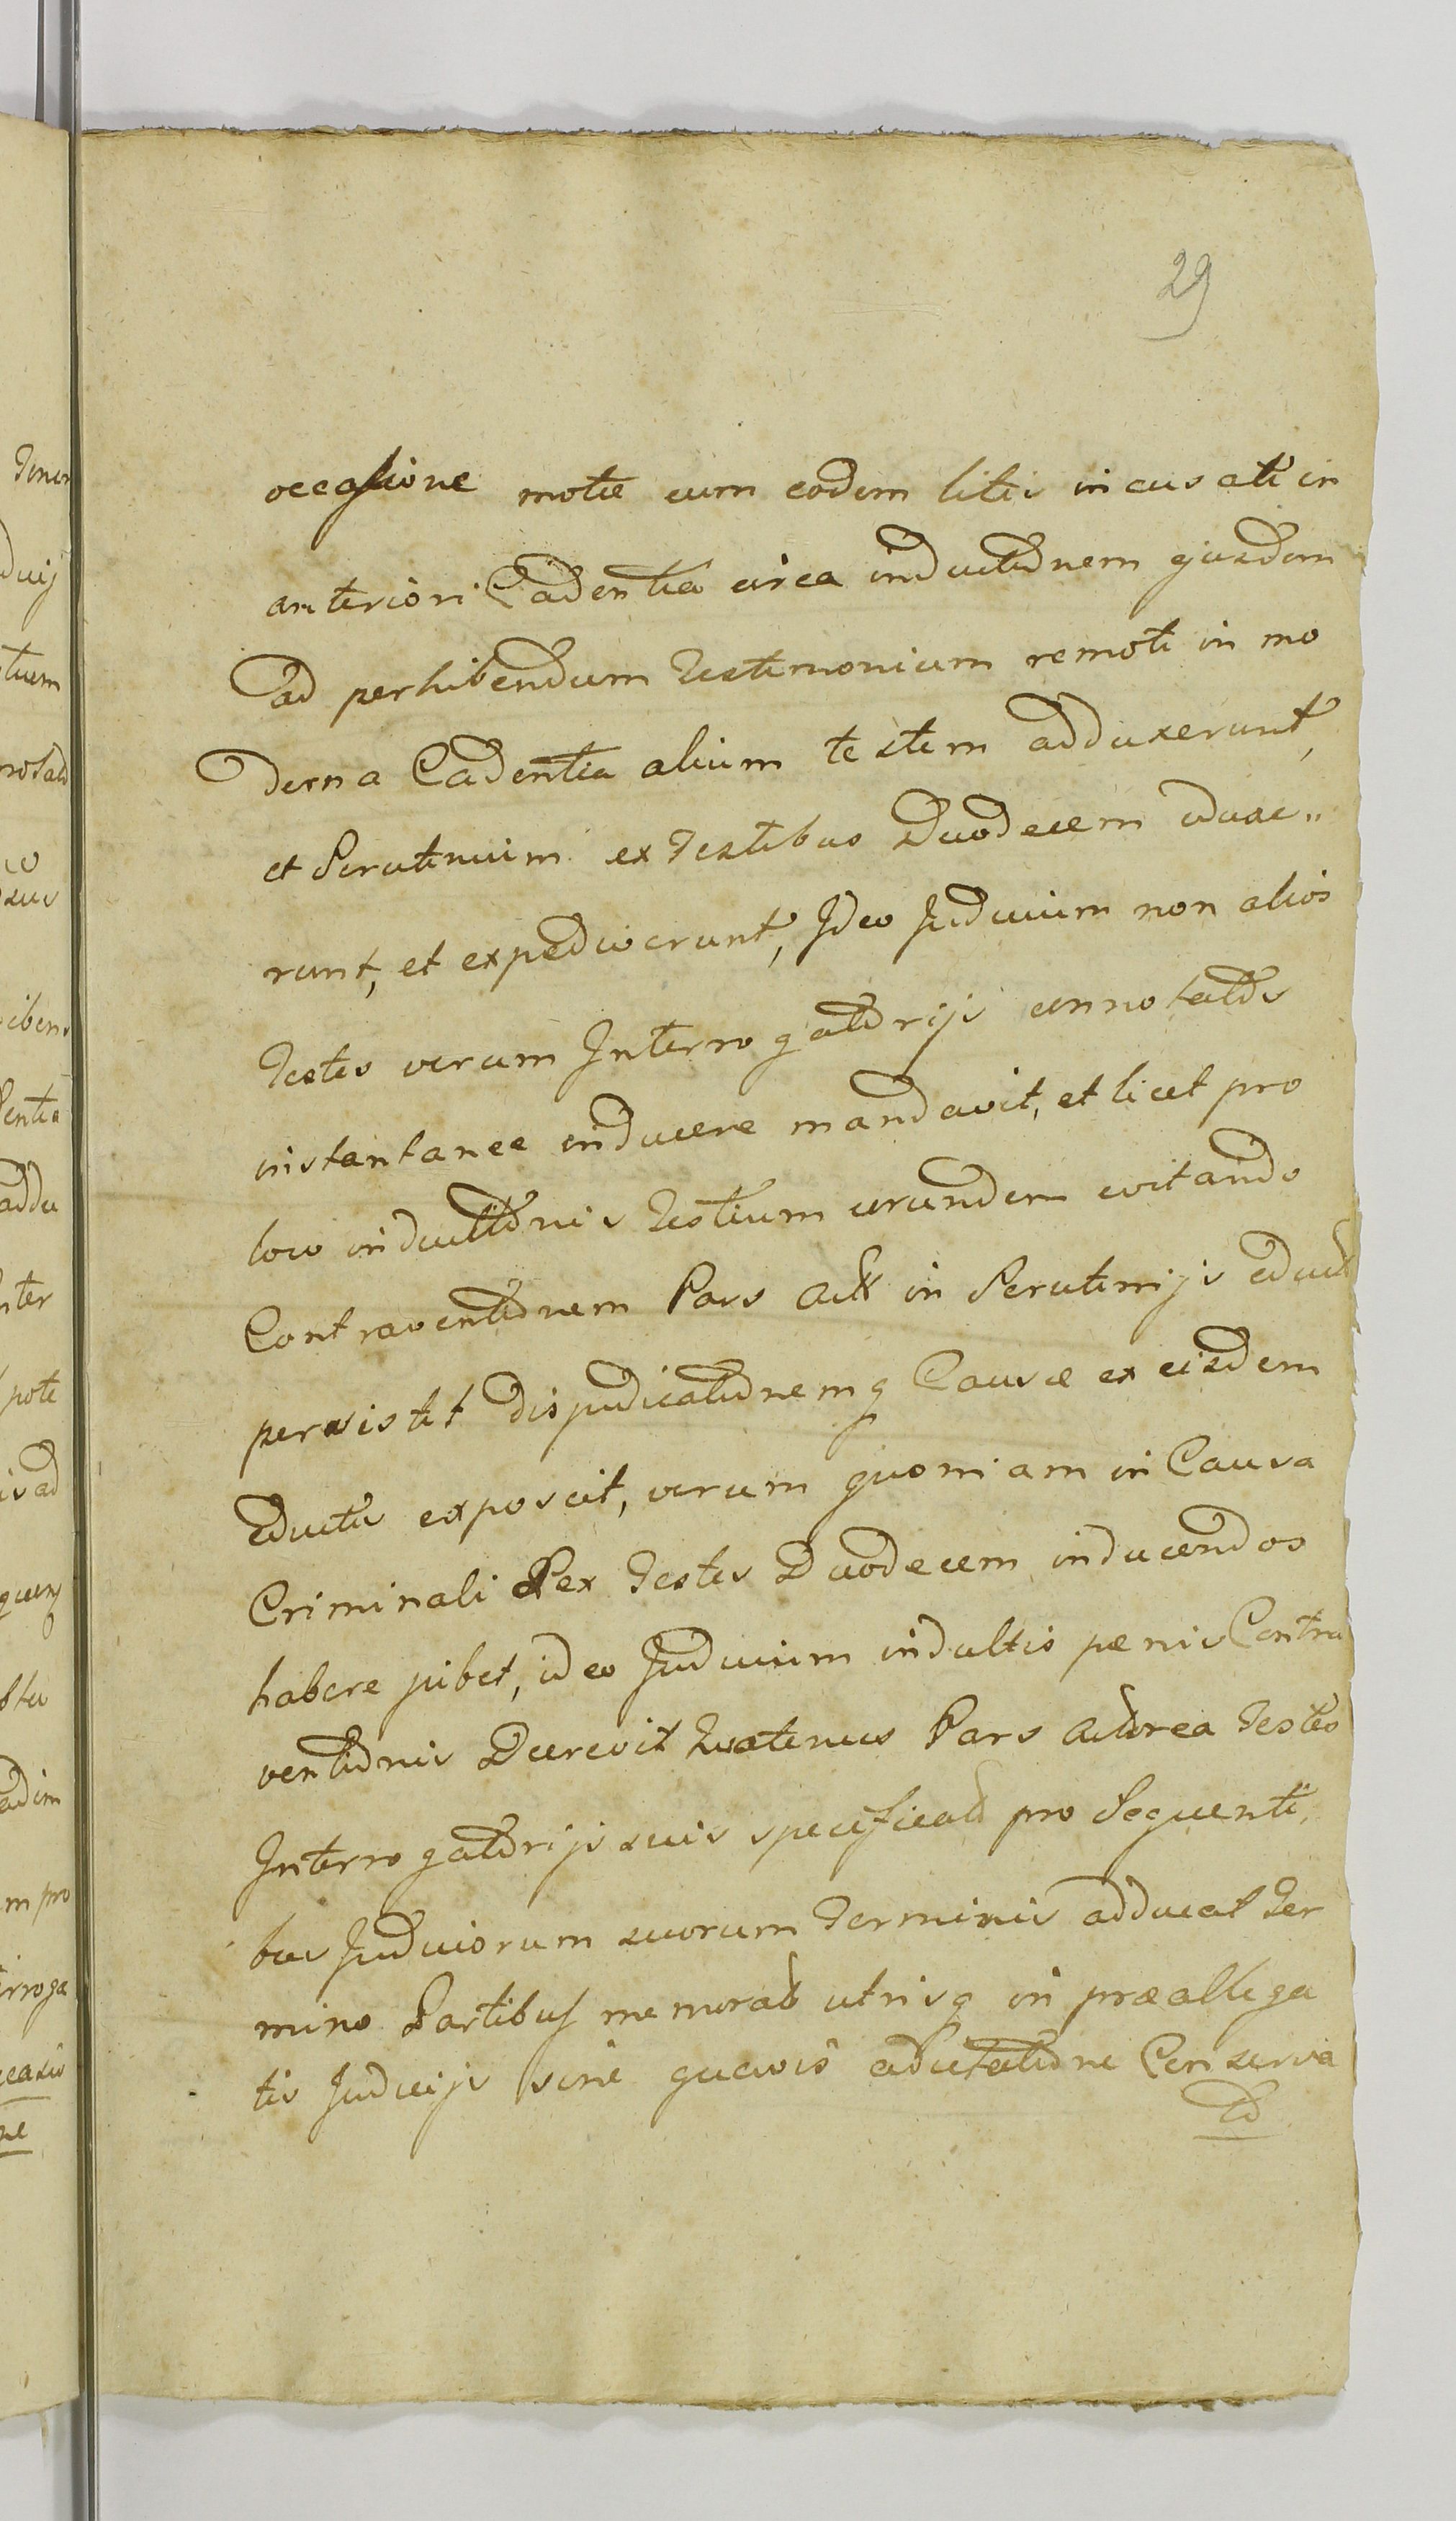 29
occasione motæ cum eodem litis incusati in
anteriori Cadentia circa inductionem ejusdem
ad perhibendum Testimonium remoti in mo
derna Cadentia alium testem adduxerunt,
et Scrutinium ex Testibus Duodecem eduxe„
runt, et expediverunt, Ideo Judicium non alios
Testes verum Interrogatorijs connotatos
instantanee inducere mandavit, et licet pro
loco inductionis Testium eorundem evitando
Contraventionem Pars Act in Scrutinijs educt
persistit disjudicationemq Causæ ex eisdem
eductis exposcit, verum quoniam in Causa
Criminali Lex Testes Duodecem inducendos
habere jubet, ideo Judicium indultis pænis Contra
ventionis Decrevit Quatenus Pars Actorea Testes
Interrogatorijs suis specificatos pro Sequenti,
bus Judiciorum suorum Terminis adducat Ter
mino Partibus memoratis utrisq in præallega
tis Judicijs sine quavis adcitatione Conserva
to